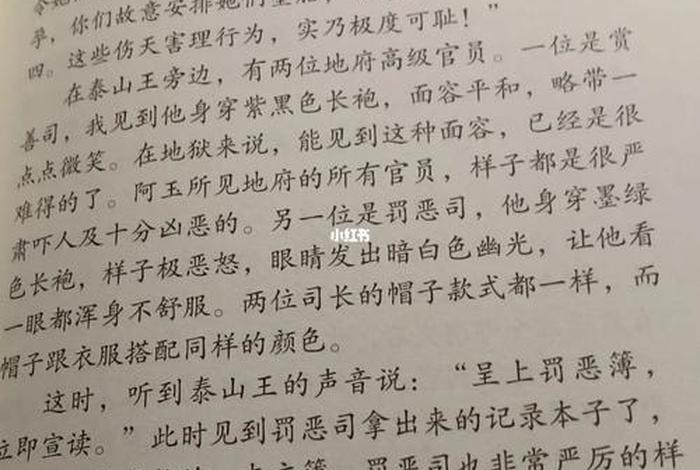 孕，你们故意安排她们
四。这些伤天害理行为，实乃极度可耻！”
在泰山王旁边，有两位地府高级官员。一位是赏
善司，我见到他身穿紫黑色长袍，面容平和，略带一
点点微笑。在地狱来说，能见到这种面容，已经是很
难得的了。阿玉所见地府的所有官员，样子都是很严
肃吓人及十分凶恶的。另一位是罚恶司，他身穿墨绿
色长袍，样子极恶怒，眼睛发出暗白色幽光，让他看
一眼都浑身不舒服。两位司长的帽子款式都一样，而
帽子跟衣服搭配同样的颜色。
这时，听到泰山王的声音说：“呈上罚恶簿，
立即宣读。”此时见到罚恶司拿出来的记录本子了，
罚恶司也非常严厉的样
小红书